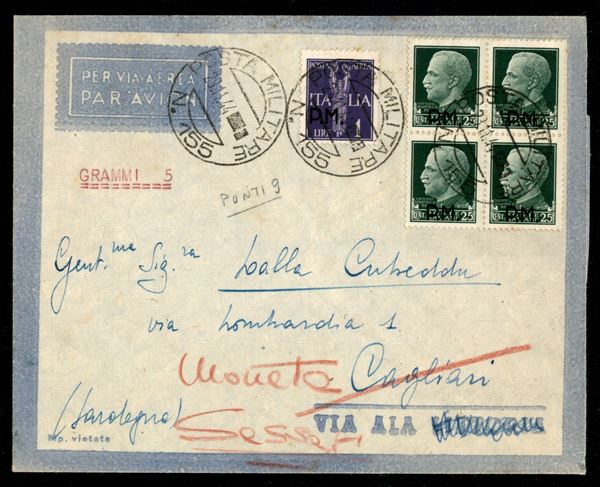 PER VIA AEREA
PAR AVION
POSTA MILITARE
N. 155
POSTA AEREA
ITALIA
P.M.
LIRE 1
POSTA MILITARE
N. 155
P.M. P.M.
CENT. 25 CENT. 25
POSTA MILITARE
P.M. P.M.
CENT. 25 CENT. 25
GRAMMI 5
PONTI 9
Gent.ma Sig.ra Lalla Cubeddu
via Lombardia 1
Moneta Cagliari
(Sardegna)
VIA ALA
Imp. vietata